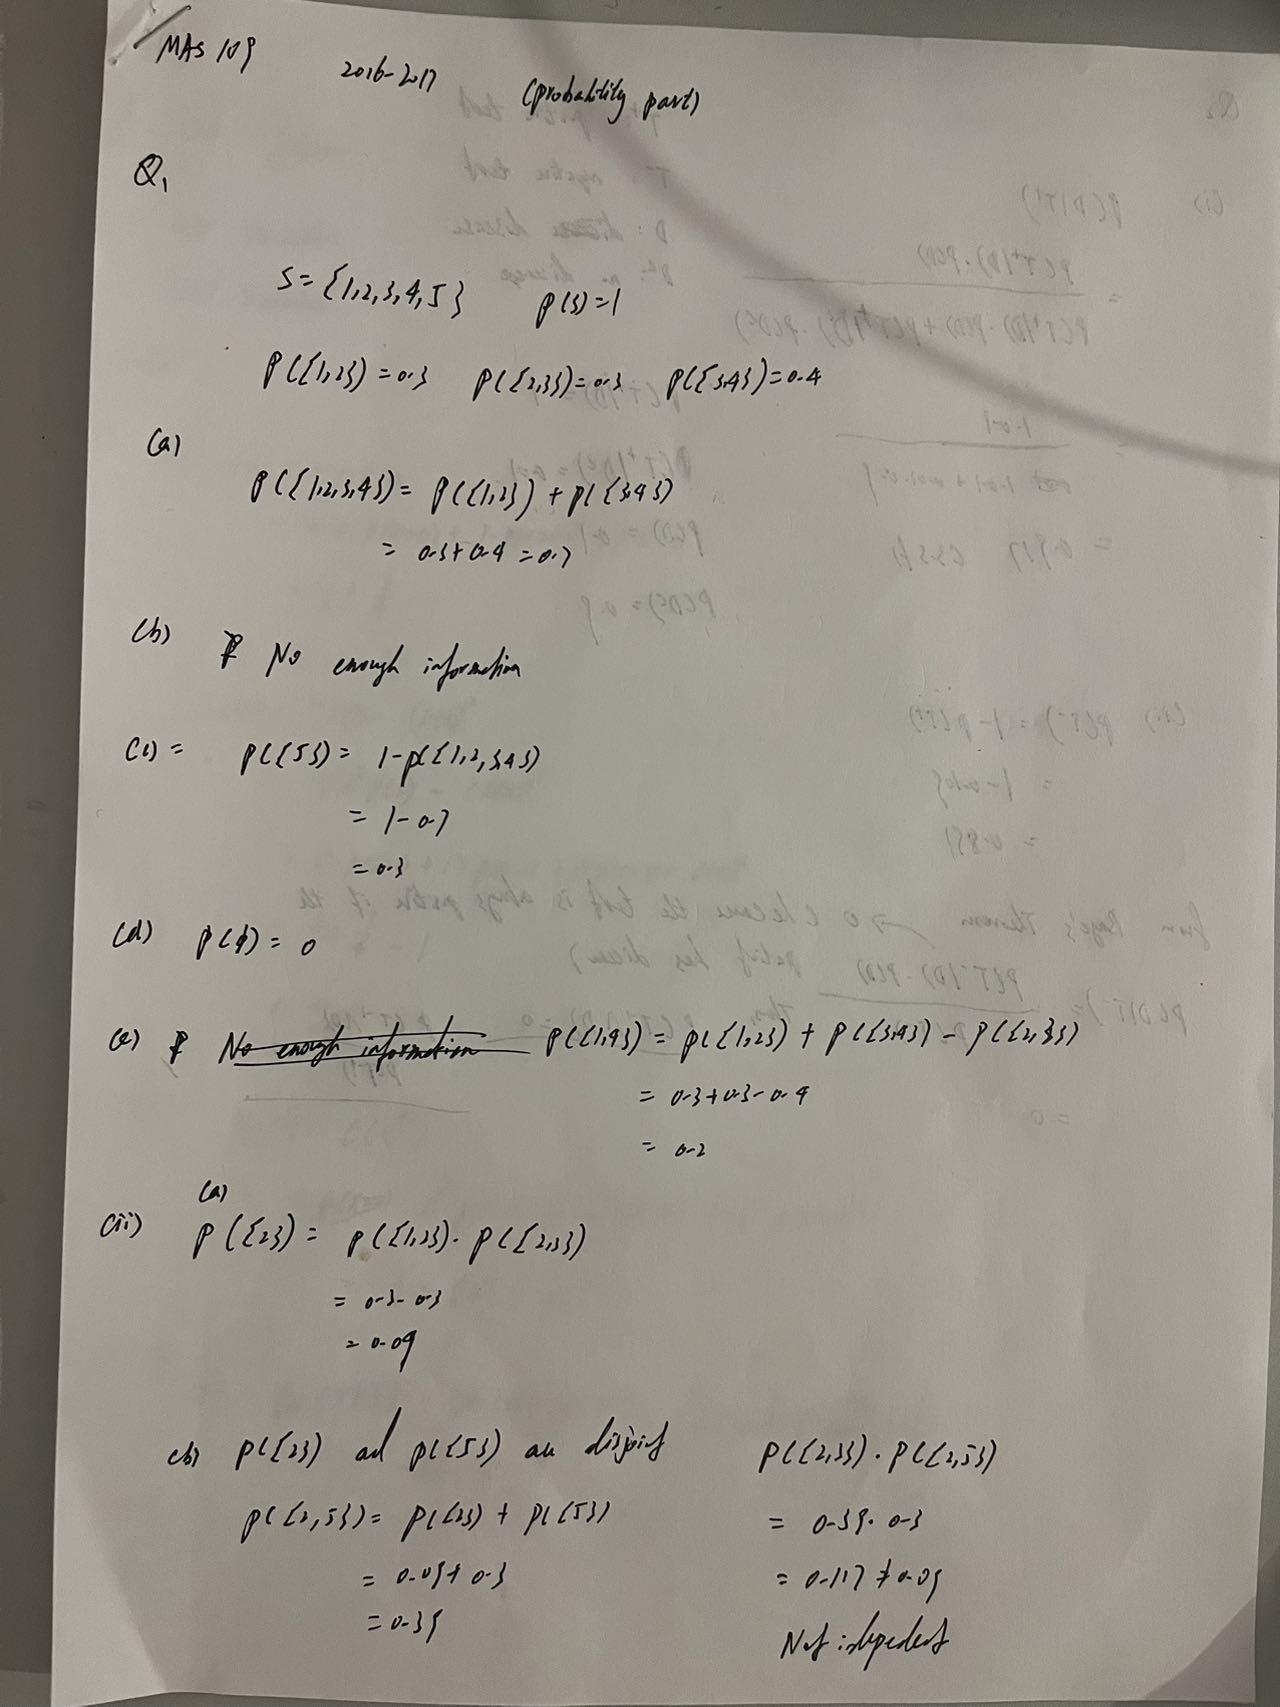 MAS 109 2016-2017 (probability part)
Q1
S={1,2,3,4,5} P(S)=1
P({1,2})=0.3 P({2,3})=0.3 P({3,4})=0.4
(a)
P({1,2,3,4})= P({1,2}) + P({3,4})
= 0.3+0.4=0.7
(b) No enough information
(c) = P({5})= 1-P({1,2,3,4})
= 1-0.7
= 0.3
(d) P(ϕ)=0
(e) No enough information P({1,4}) = P({1,2}) + P({3,4}) - P({2,3})
= 0.3+0.3-0.4
= 0.2
(a)
(ii) P({2}) = P({1,2})· P({2,3})
= 0.3·0.3
= 0.09
(b) P({2}) ad P({5}) au disjoint P({2,3})·P({2,5})
P({2,5})= P({2}) + P({5}) = 0.39·0.3
= 0.09+0.3 = 0.117≠0.09
=0.39
Not independent